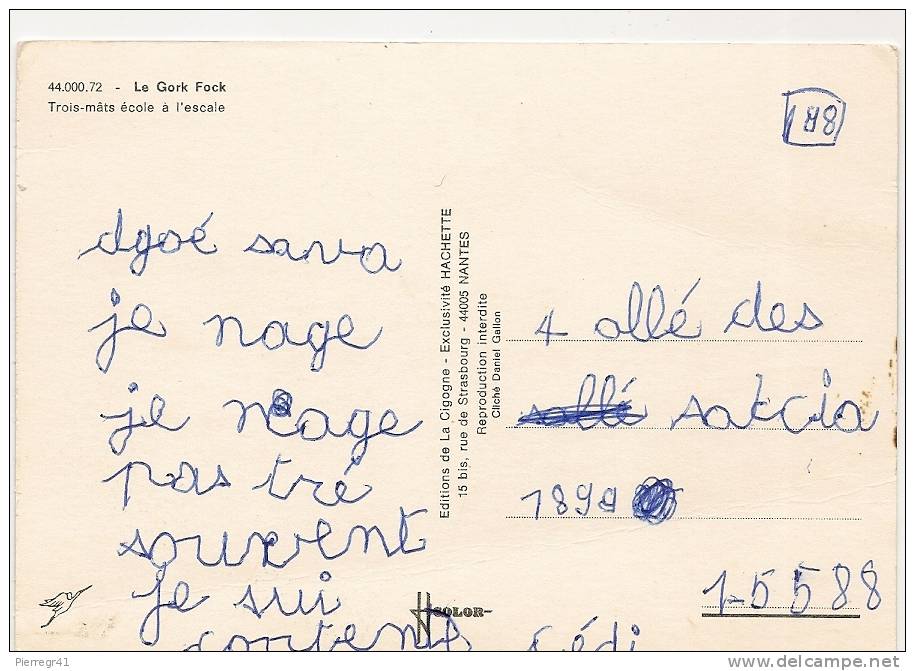 44.000.72 - Le Gork Fock
Trois-mâts école à l'escale
188
dgoé sava
je nage
je nage
pas tré
souvent
je sui
content Cédi
Editions de La Cigogne - Exclusivité HACHETTE
15 bis, rue de Strasbourg - 44005 NANTES
Reproduction interdite
Cliché Daniel Gallon
4 allé des
allé satcia
1899
1-5588
COLOR
Pierregr41
delcampe.net